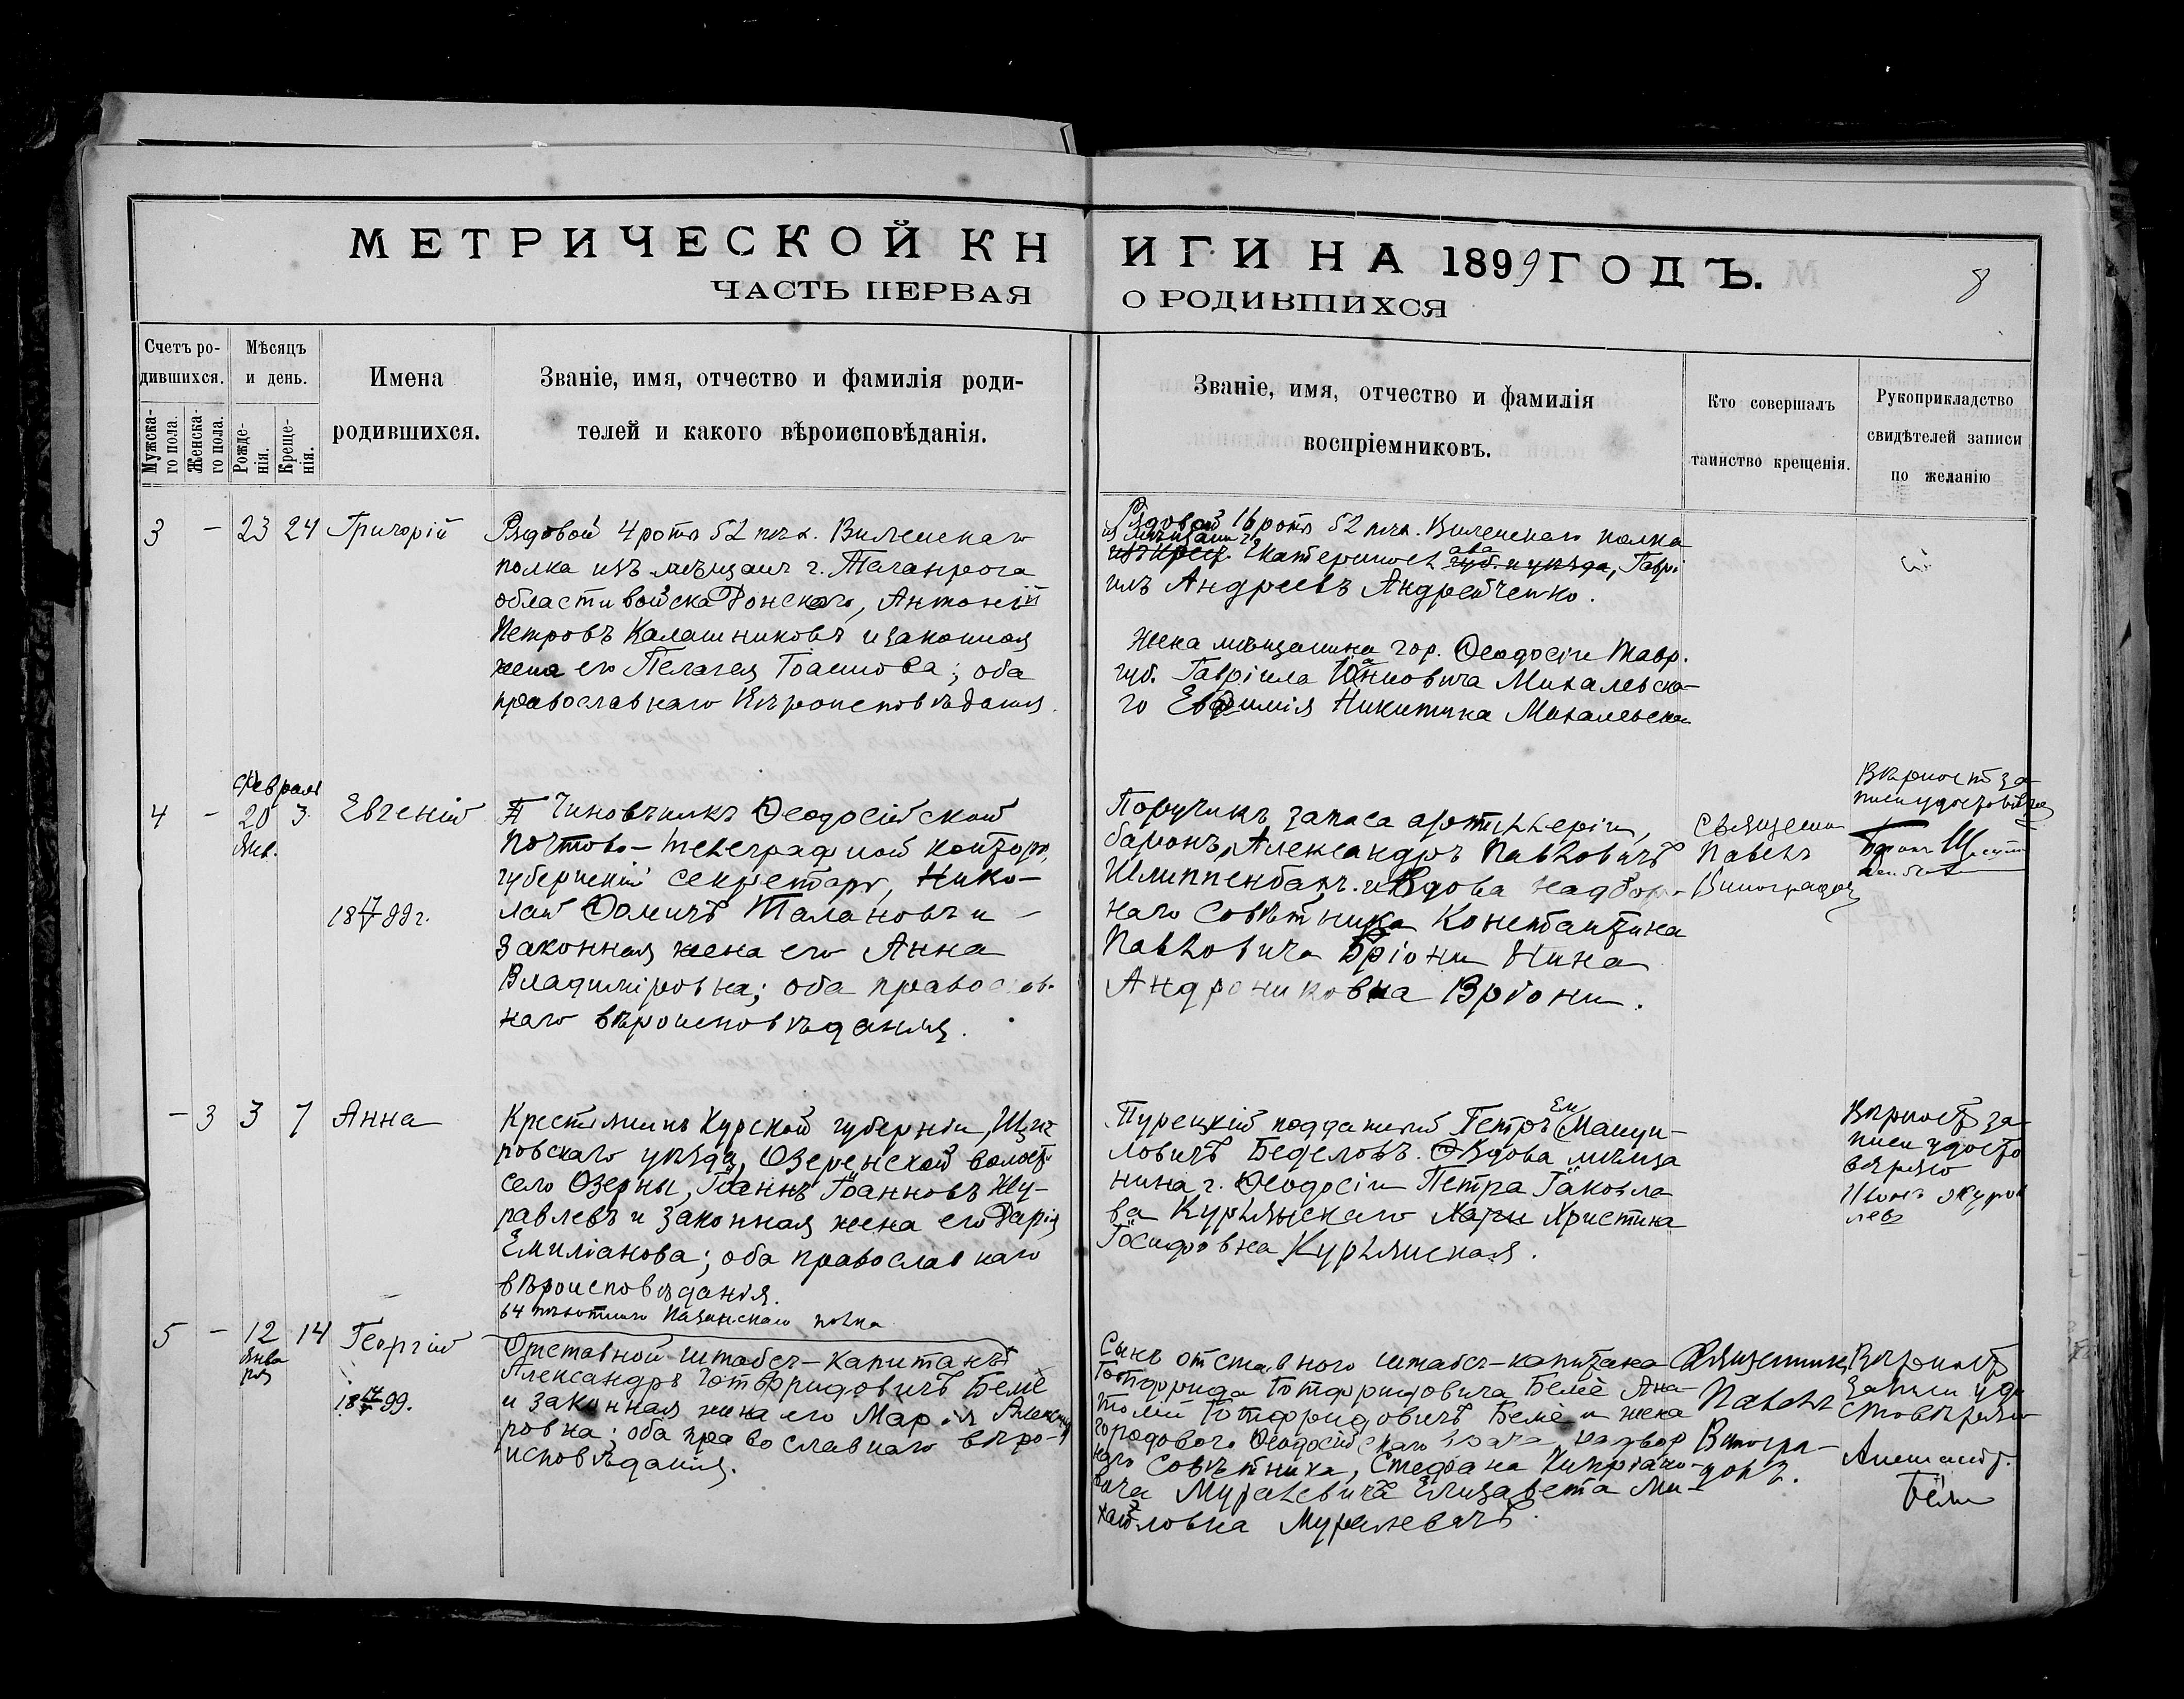 МЕТРИЧЕСКОЙ КНИГИ НА 1899 ГОДЪ.
8
ЧАСТЬ ПЕРВАЯ О РОДИВШИХСЯ
Счетъ ро-
дившихся.
Мужска-
го пола.
Женска-
го пола.
Мѣсяцъ
и день.
Рожде-
нія.
Креще-
нія.
Имена
родившихся.
Званіе, имя, отчество и фамилія роди-
телей и какого вѣроисповѣданія.
Званіе, имя, отчество и фамилія
воспріемниковъ.
Кто совершалъ
таинство крещенія.
Рукоприкладство
свидѣтелей записи
по желанію
3 - 23 24 Григорій
Рядовой 4 роты 52 пѣх. Виленскаго
полка изъ мѣщанъ г. Таганрога
области войска Донскаго, Антоній
Петровъ Калашниковъ и законная
жена его Пелагея Іоаннова; оба
православнаго вѣроисповѣданія.
Рядовой 16 роты 52 пѣх. Виленскаго полка
из мѣщанъ г.
изъ крест. Екатеринослава губ. и уѣзда, Гаврі-
илъ Андреевъ Андрейченко.
Жена мѣщанина гор. Ѳеодосіи Тавр.
губ. Гавріила Михалевска-
го Евфимія Никитина Михалевская
Февраля
4 - 20 3 Евгеній
Янв.
18 17/V 99 г.
Чиновникъ Ѳеодосійской
почтово-телеграфной конторы,
губернскій секретарь, Нико-
лай Ѳомичъ Талановъ и
законная жена его Анна
Владиміровна; оба православ-
наго вѣроисповѣданія.
Поручикъ запаса артиллеріи,
баронъ Александръ Павловичъ
Шлиппенбахъ и Вдова надвор-
наго Совѣтника Константина
Павловича Бріони Нина
Андрониковна Вріони.
Священн
Павелъ
Виноградовъ
Вѣрность за-
писи удостовѣряю
Баронъ
- 3 3 7 Анна
Крестьянинъ Курской губерніи, Щиг-
ровскаго уѣзда, Озеренской волости
село Озерны, Іоаннъ Іоанновъ Жу-
равлевъ и законная жена его Дарія
Емиліанова; оба православнаго
вѣроисповѣданія.
Турецкій подданный Петръ Емануи-
ловичъ Беделовъ. Вдова мѣща
нина г. Ѳеодосіи Петра Іаковле
ва Курлянскаго Хари Христина
Іосифовна Курлянская.
Вѣрность за-
писи удосто
вѣряю
Журов
левъ
64 пѣхотнаго Казанскаго полка
5 - 12 14 Георгій
Янва
ря
18 17/V 99.
Отставной штабсъ-капитанъ
Александръ Готфридовичъ Беме
и законная жена его Марія Александ
ровна; оба православнаго вѣро-
исповѣданія.
Сынъ отставного штабсъ-капитана
Готфрида Готфридовича Беме Ана-
толій Готфридовичъ Беме и жена
городового Ѳеодосійскаго врача надвор
наго Совѣтника, Стефана Кипріано-
вича Муралевича Елизавета Ми-
хайловна Муралевичъ.
Священникъ
Павелъ
Виногра-
довъ.
Вѣрность
записи удо
стовѣряю
Александр.
Беме